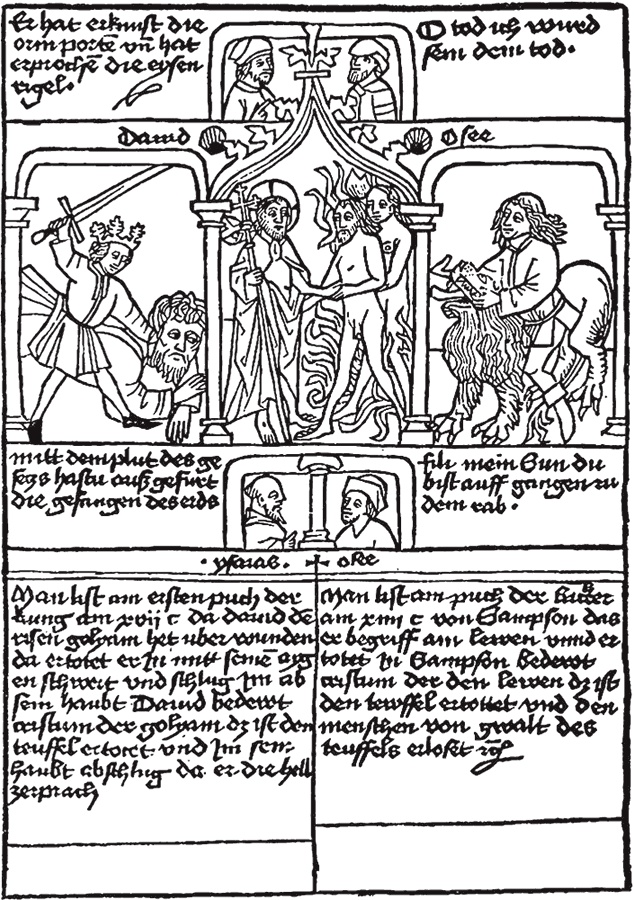 Er hat erknust die
orin portē vn̄ hat
erprochē die eysen
rigel.
O tod ich wurd
sein dem tod.
Dauid
Osee
mitt dem plut des ge
secz hastu auß gefurt
die gefangen des erds
fili mein Sun du
bist auff gangen zu
dem rab.
ysaias.
Man list am ersten puch der
kung am xvij c da dauid dē
risen golyam het uber wunden
da ertotet er In mitt seinē aig
en schwert vnd schlug Im ab
sein haubt Dauid bedewt
cristum der golyam dz ist den
teuffel ertotet vnd Im sein
haubt abschlug da er die hell
zerprach
Man list am puch der
am xiiii c von Sampson das
er begriff am lewen vnnd er-
totet in Sampson bedewt
cristum der den lewen dz ist
den tewffel ertottet vnd den
menschen von gwalt des
teuffels erloset